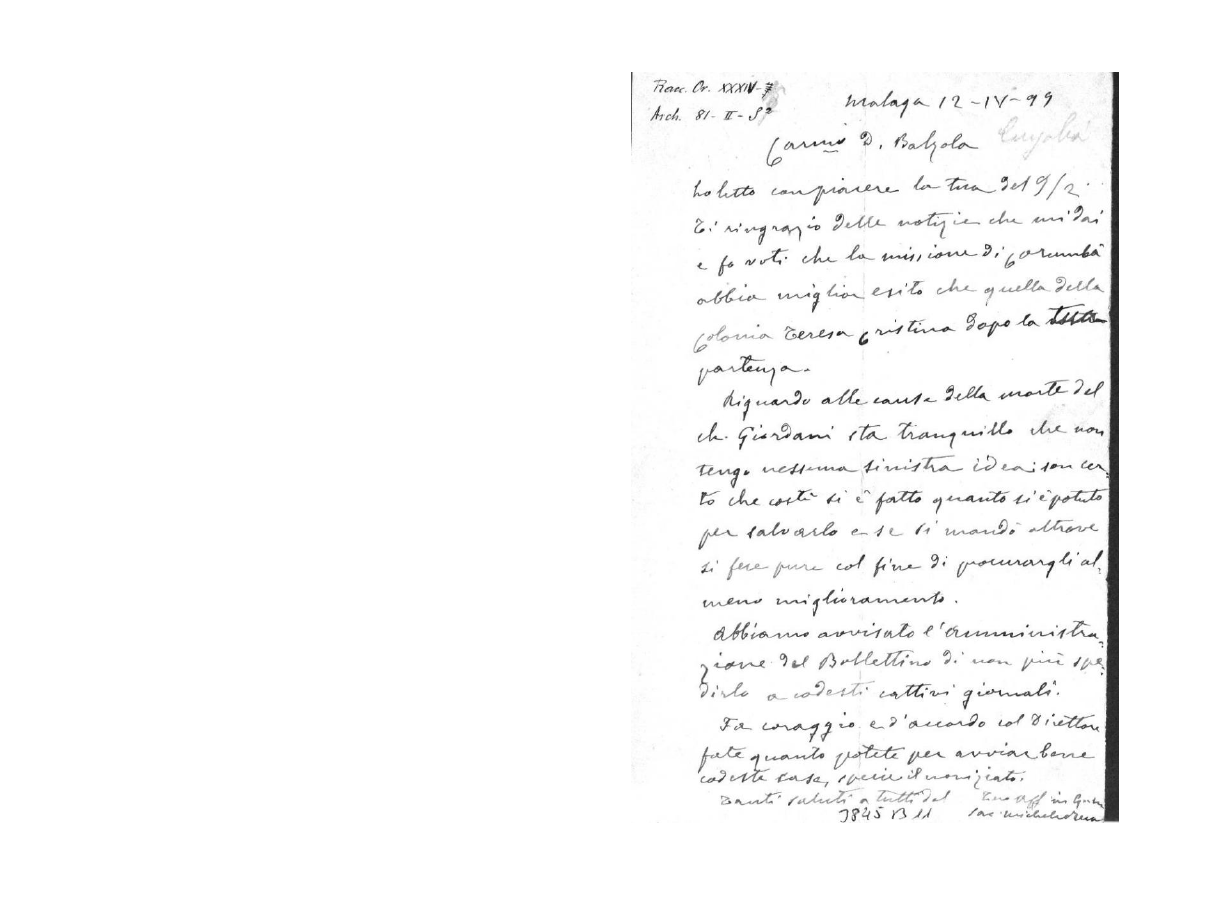 Racc. Or. XXXIV-7
Arch. 81- II- S?
Malaga 12-IV-99
Carmo D. Balzola
Cuyabá
ho letto con piacere la tua del 9/2.
Ti ringrazio delle notizie che mi dai
e fo voti che la missione di Corumbà
abbia miglior esito che quella della
Colonia Teresa Cristina dopo la
partenza.
Riguardo alle cause della morte del
ch. Giordani sta tranquillo che non
tengo nessuna sinistra idea: son cer-
to che costì si è fatto quanto si è potuto
per salvarlo e se si mandò altrove
si fece pure col fine di procurargli al-
meno miglioramento.
Abbiamo avvisato l'amministra-
zione del Bollettino di non più spe-
dirlo a codesti cattivi giornali.
Fa coraggio e d'accordo col Direttore
fate quanto potete per avviar bene
codeste case, specie il noviziato.
Tanti saluti a tutti dal Tuo aff in G.
Sac. Michele Rua
3845 B 11